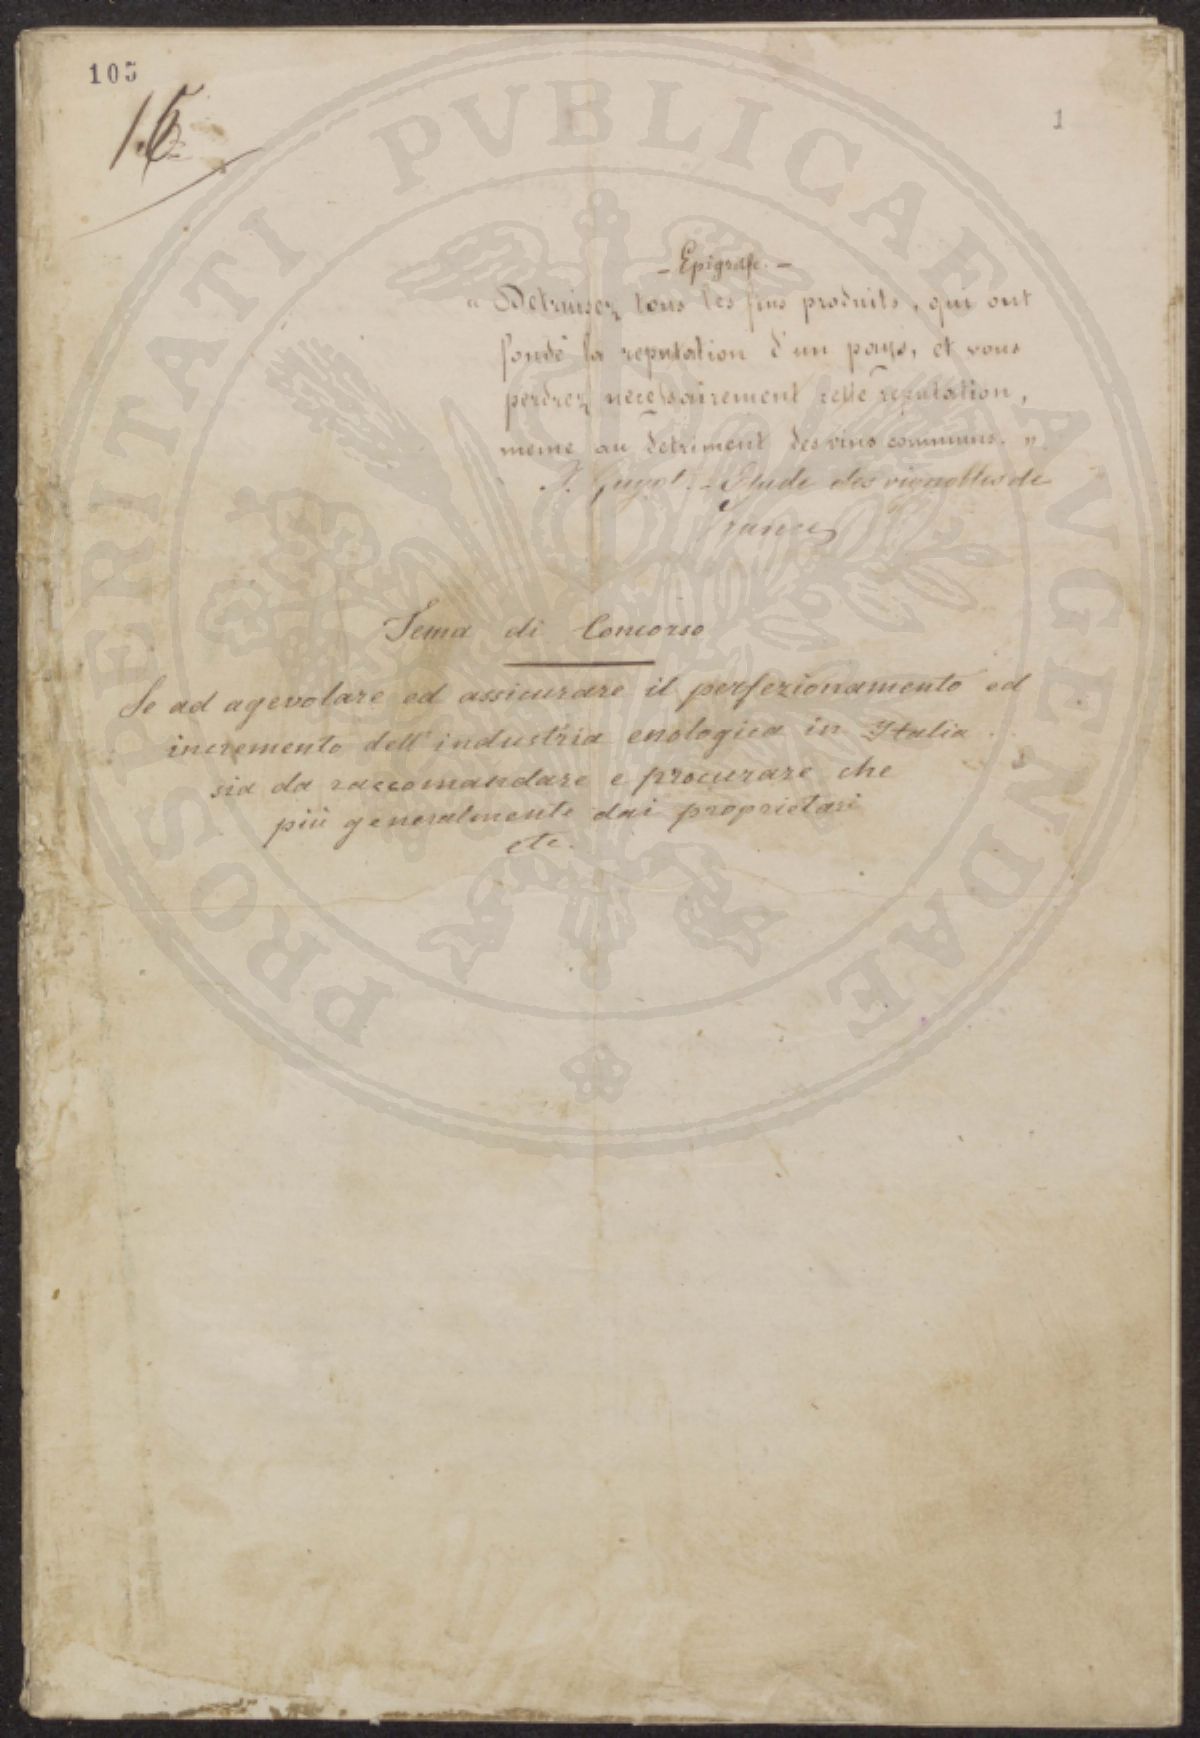 105
1
- Epigrafe. -
" Detruisez tous les fins produits, qui ont
fondé la reputation d'un pays, et vous
perdrez necessairement cette reputation,
meme au detriment des vins communs. "
J. Guyot. - Etude des vignobles de
France
Tema di Concorso
Se ad agevolare ed assicurare il perfezionamento ed
incremento dell'industria enologica in Italia
sia da raccomandare e procurare che
più generalmente dai proprietari
etc.
PROSPERITATI PVBLICAE AVGENDAE